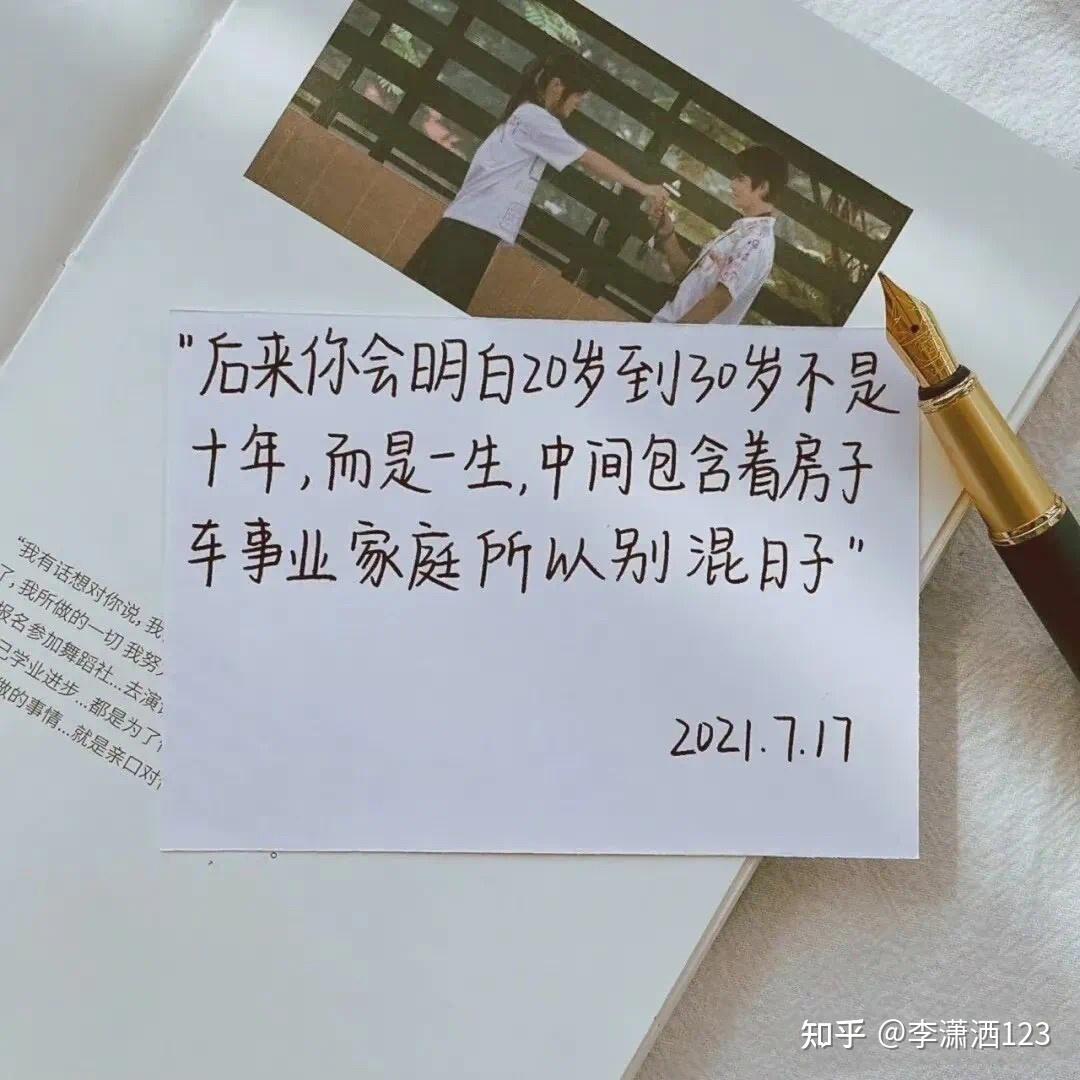 "后来你会明白20岁到30岁不是
十年,而是一生,中间包含着房子
车事业家庭所以别混日子"
2021.7.17
“我有话想对你说,我
了,我所做的一切 我努
报名参加舞蹈社...去演
己学业进步...都是为了
做的事情...就是亲口对
知乎 @李潇洒123